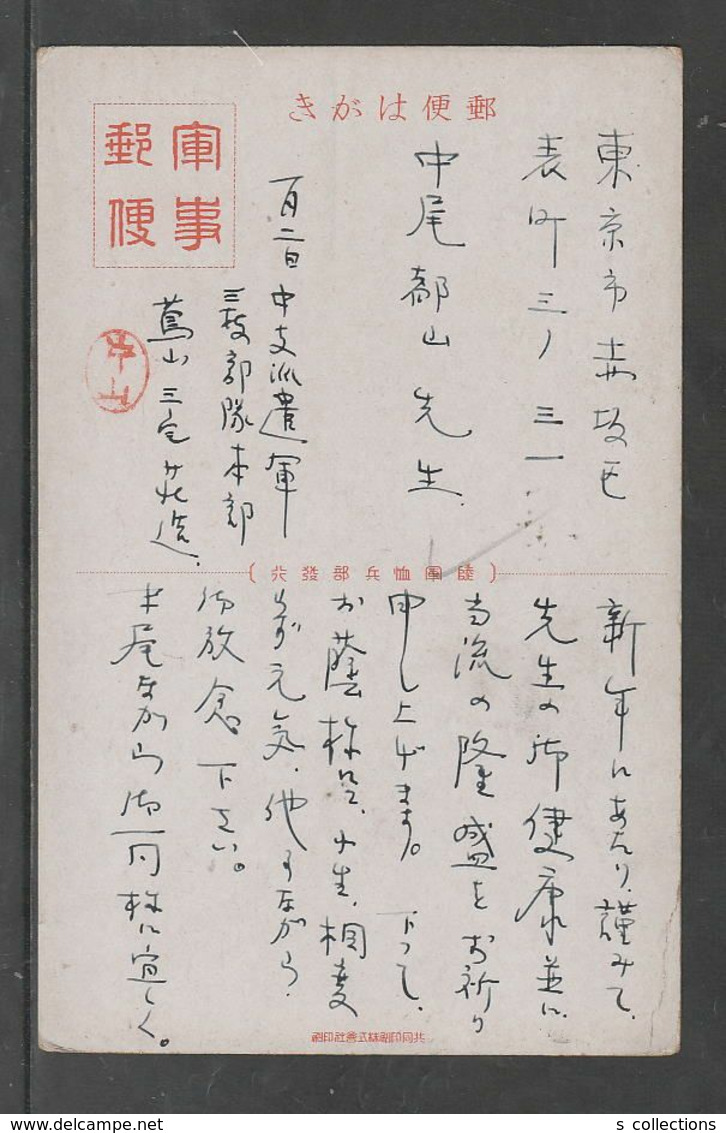 郵便はがき
軍事
郵便
東京市赤坂区
表町三ノ三一
中尾都山先生
一月二日 中支派遣軍
部隊本部
蔦山 三宅 造
中山
(陸軍恤兵部發行)
新年にあたり、謹みて、
先生の御健康並に
当流の隆盛をお祈り
申し上げます。下って、
お蔭様にて、小生、相変
らず元気、他事ながら、
御放念下さい。
末尾ながら御一同様に宜しく。
共同印刷株式會社印刷
s collections